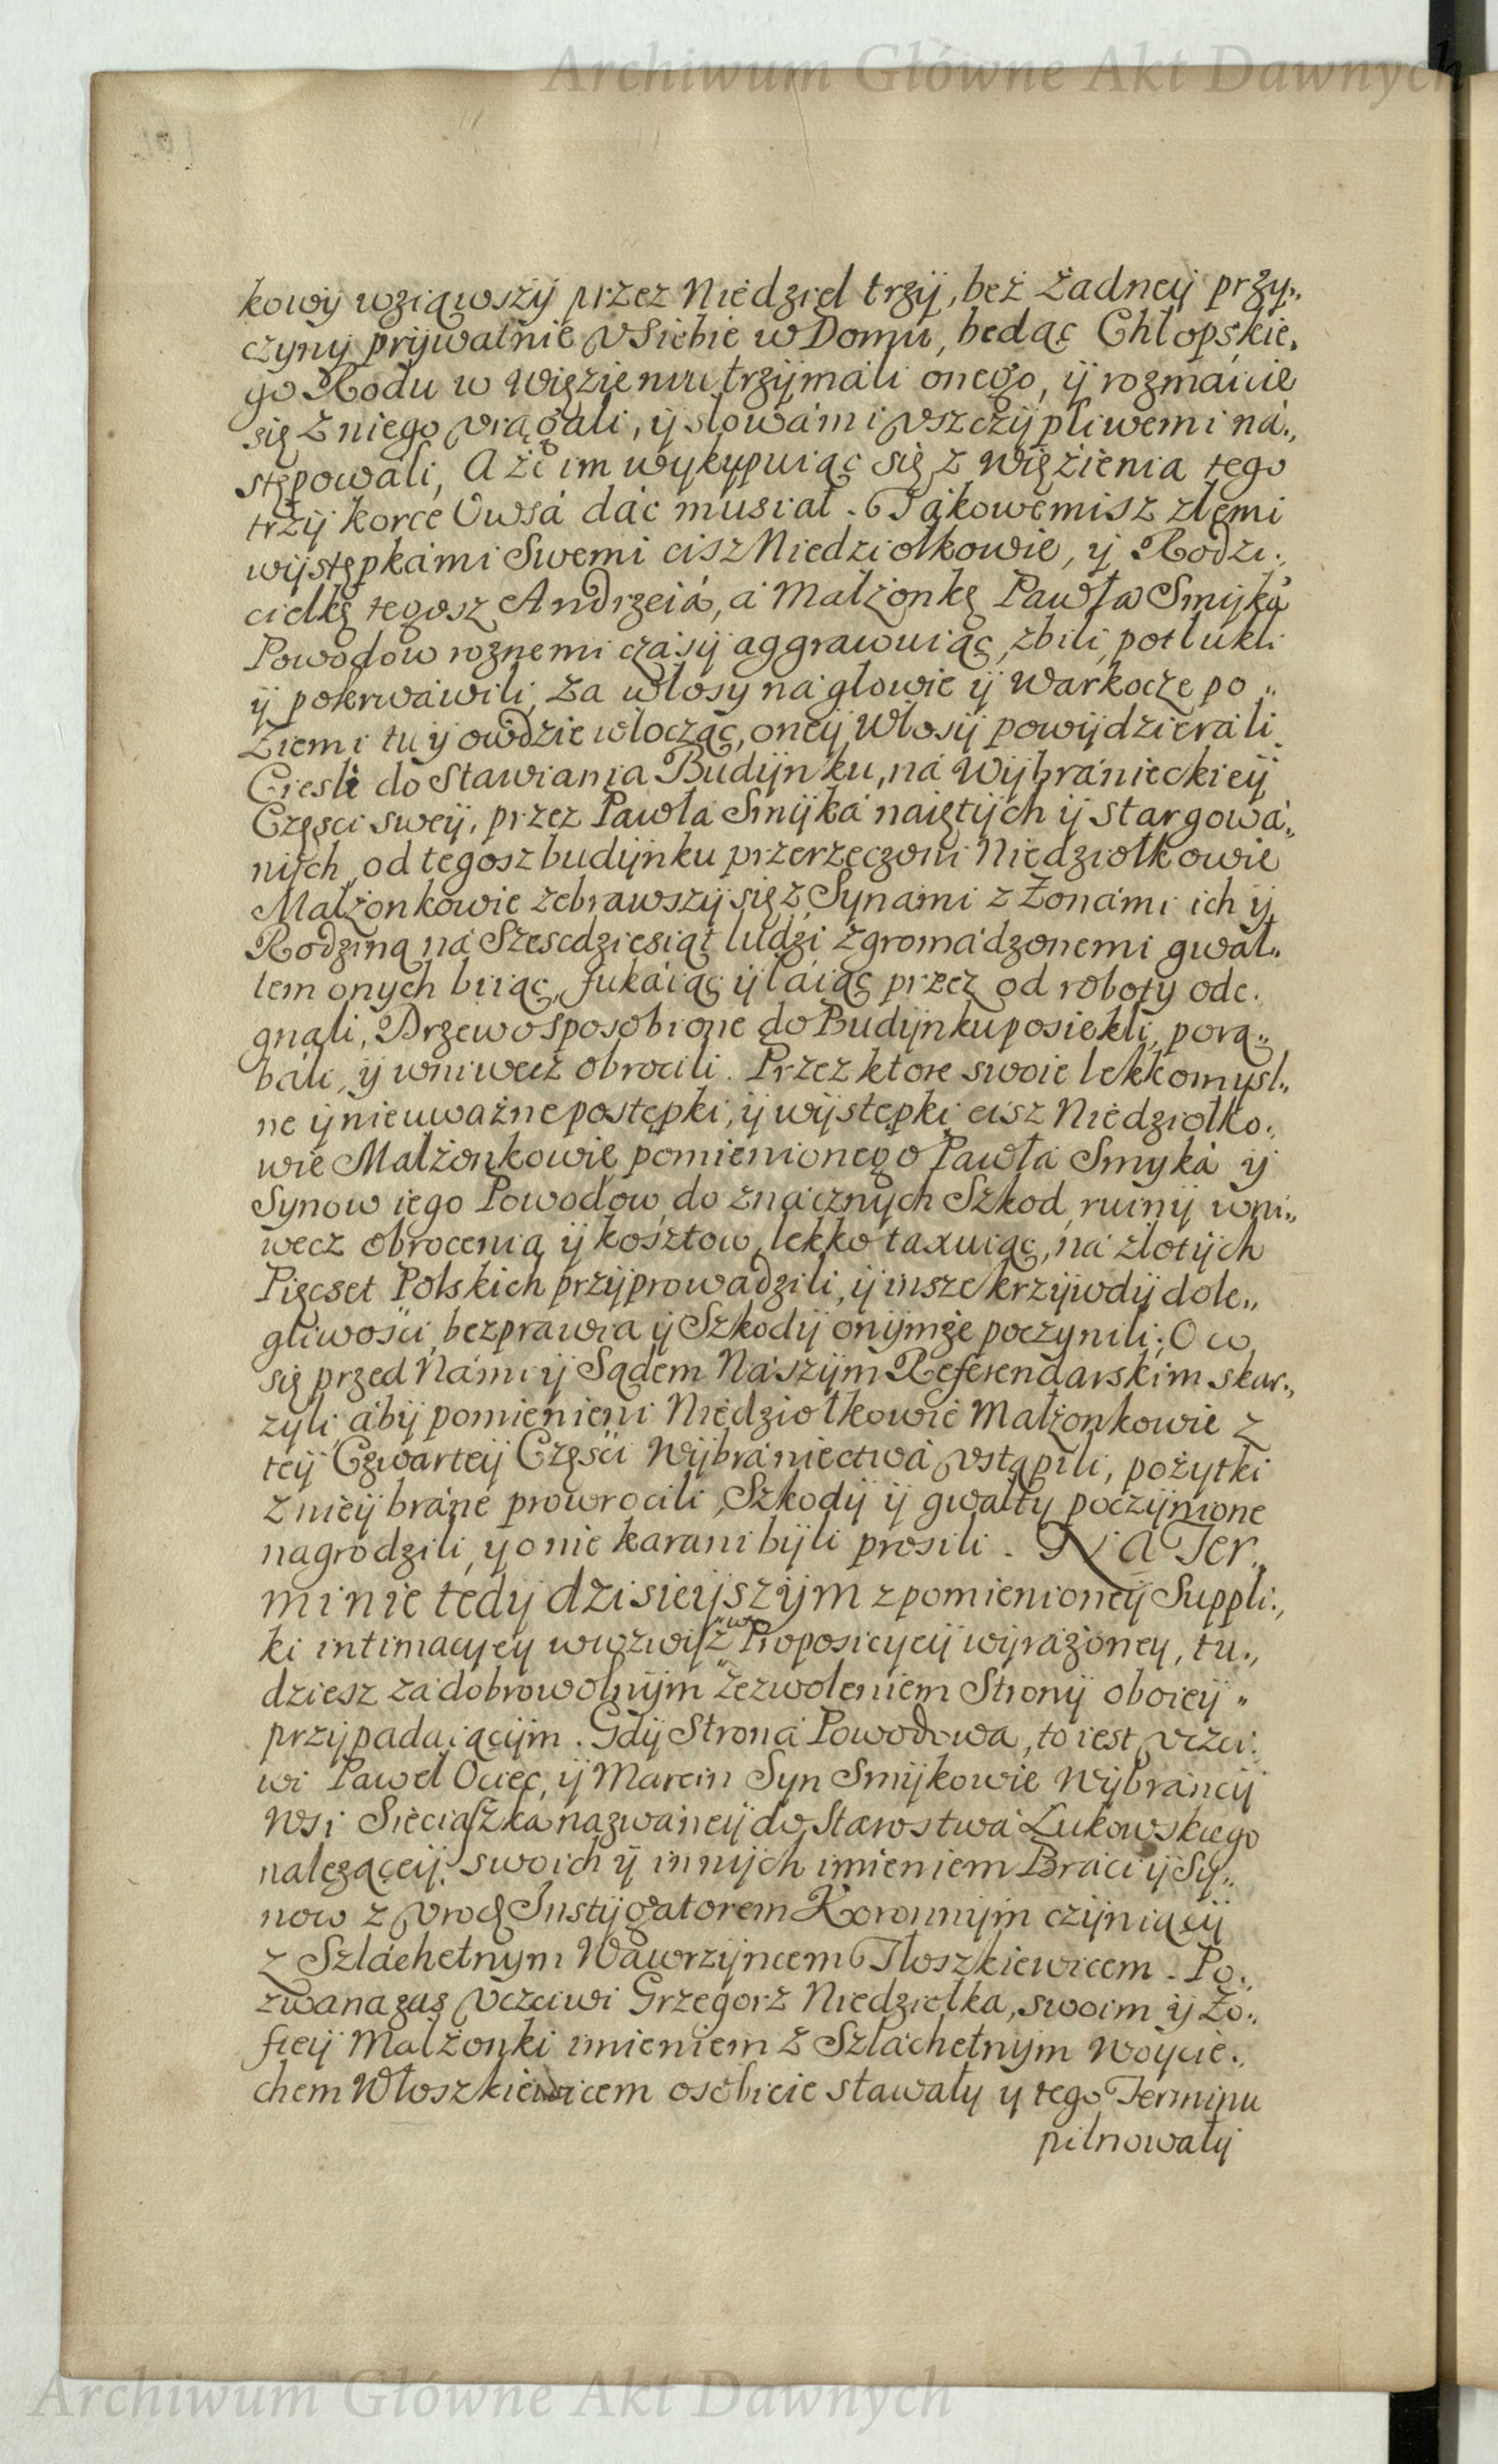 Archiwum Główne Akt Dawnych
kowÿ wziąwszÿ przez Niedziel trzÿ, beż żadneÿ przy„
czynÿ prÿwatnie v Siebie w Domu, bedąc Chlopskie„
go Rodu w więzieniu trzÿmali onego, ÿ rozmaicie
się z niego vrągali, ÿ slowámi vszczÿpliwemi ná„
stępowáli, Aże im wÿkupuiąc się z więżienia tego
trzÿ korce Owsá dáć musiał. Tákowemisz zlemi
wÿstępkámi Swemi cisz Niedziolkowie, ÿ Rodzi„
cielkę tegosz Andrzeiá, á Małżonkę Pawła Smÿká
Powodow roznemi czásÿ aggrawuiąc, zbili, potlukli
ÿ pokrwáwili, Za włosy ná glowie ÿ Warkocze po„
Ziemi tu ÿ owdzie wlocząc, oneÿ Włosÿ powÿdzierali
Ciesli do Stawiania Budÿnku, ná Wÿbránieckieÿ
Częsci sweÿ, przez Pawła Smÿká naiętÿch ÿ stargowá„
nÿch, od tegosz budÿnku przerzeczoni Niedziołkowie
Małżonkowie zebrawszÿ się z Synámi z Żonámi ich ÿ
Rodziną ná Szescdziesiąt ludzi zgromádzonemi gwał„
tem onych biiąc, fukáiąc ÿ láiąc przez od roboty ode„
gnali, Drzewo sposobione do Budÿnku posiekli, porą„
bali, ÿ wniwecz obrocili. Przez ktore swoie lekkomysl„
ne ÿ nieuważne postępki, ÿ wÿstępki cisz Niedziołko„
wie Małżonkowie pomienionego Pawła Smyká ÿ
Synow iego Powodow, do znácznych Szkod, ruinÿ wni„
wecz obrocenia ÿ kosztow, lekko taxuiąc, ná złotÿch
Pięcset Polskich przÿprowadzili, ÿ insze krzÿwdÿ dole„
gliwości, bezprawia ÿ Szkodÿ onÿmże poczynili; O co
się przed Námi ÿ Sądem Naszÿm Referendarskim skar„
żyli, ábÿ pomienieni Niedziołkowie Małżonkowie z
teÿ Czwarteÿ Części Wÿbrániectwá vstąpili, pożytki
z nieÿ bráne prowrocili, Szkodÿ ÿ gwałty poczÿnione
nagrodzili, y o nie karani bÿli prosili. Na Ter„
minie tedÿ dzisieÿszÿm z pomienioneÿ Suppli„
ki intimacyey wwzwisz w Proposicyeÿ wÿrażoney, tu„
dziesz zá dobrowolnÿm Zezwoleniem Stronÿ oboieÿ„
przÿpadaiącÿm. Gdÿ Stroná Powodowa, to iest vczci„
wi Paweł Ociec, ÿ Marcin Syn Smÿkowie Wÿbráncÿ
Wsi Sieciaszka nazwáneÿ do Starostwá Łukowskiego
należąceÿ, swoich ÿ innÿch imieniem Bráci ÿ Sy„
now z vrodz Instÿgatorem Koronnÿm czÿniącÿ
z Szláchetnym Wáwrzÿncem Tłoszkiewicem. Po„
zwana zaś vczciwi Grzegorz Niedziołka, swoim ÿ Zo„
fieÿ Małżonki imieniem z Szláchetnÿm Woÿcie„
chem Włoszkiewicem osobicie stawały y tego Terminu
pilnowałÿ
Archiwum Główne Akt Dawnych